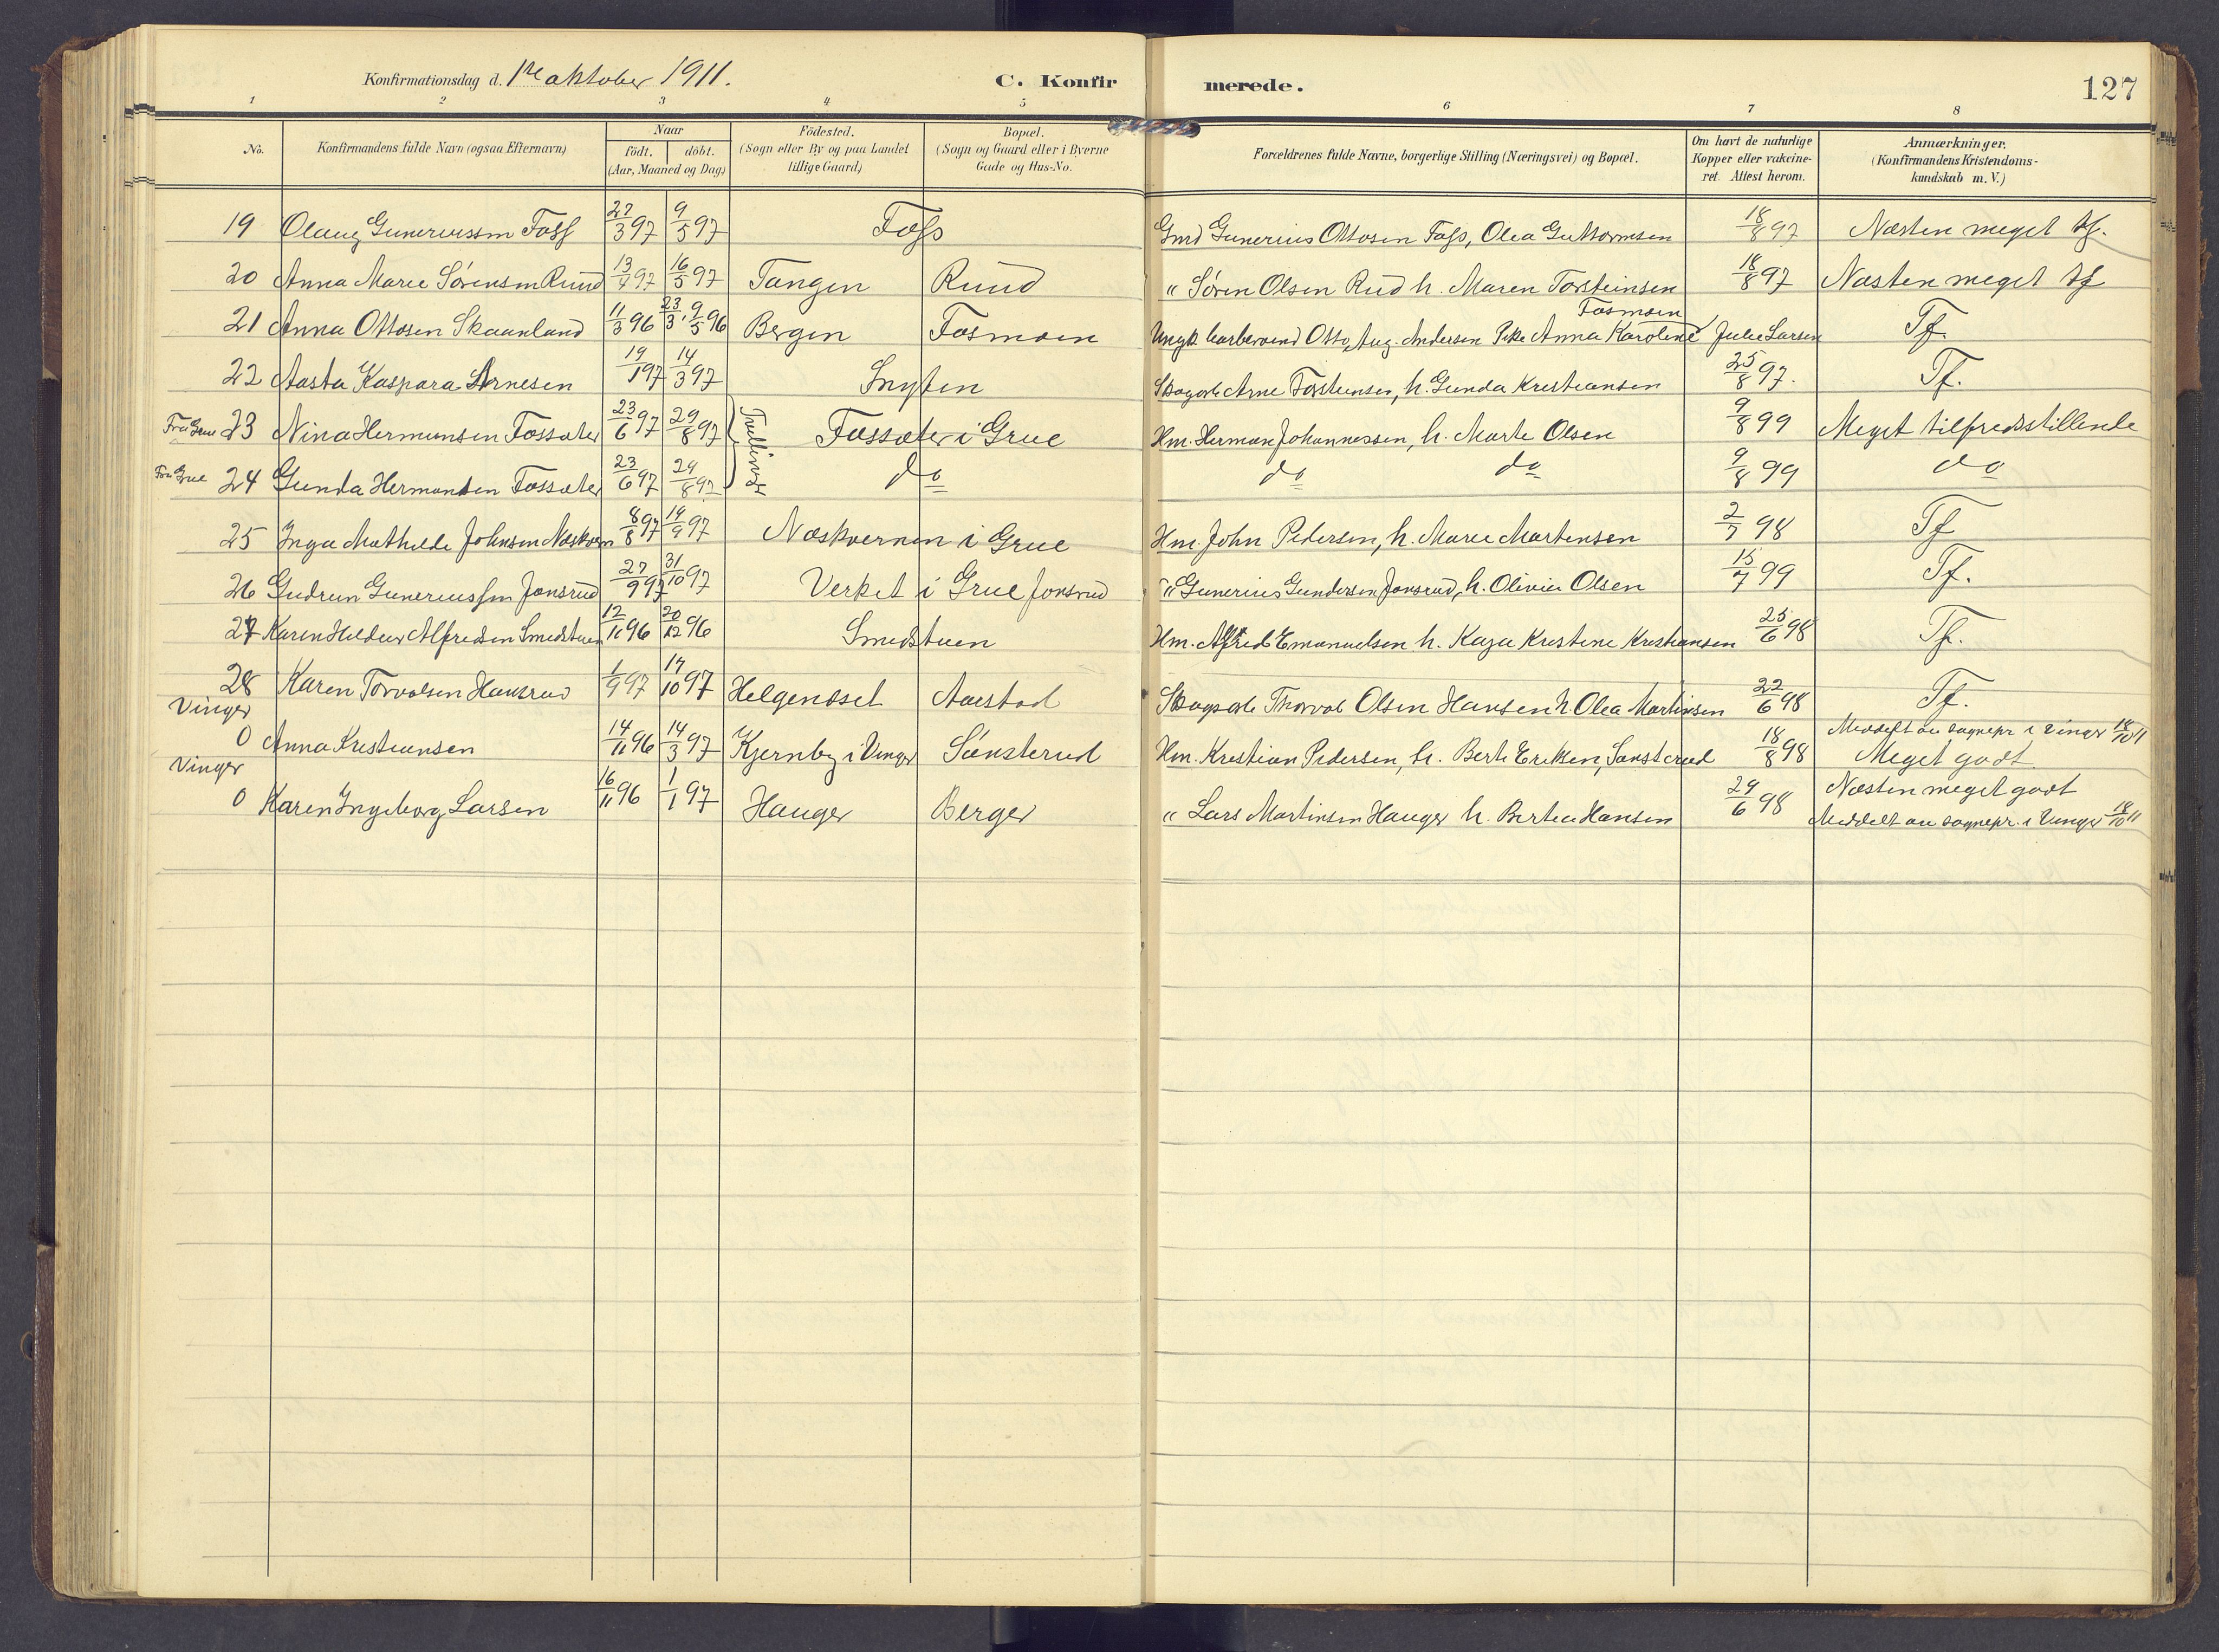 Konfirmationsdag d. 1ste oktober 1911. C. Konfirmerede. 127
1 2 3 4 5 6 7 8
No. Konfirmandens fulde Navn (ogsaa Efternavn) Naar født. døbt. (Aar, Maaned og Dag) Födested. (Sogn eller By og paa Landet tillige Gaard) Bopæl. (Sogn og Gaard eller i Byerne Gade og Hus-No. Forældrenes fulde Navne, borgerlige Stilling (Næringsvei) og Bopæl. Om havt de naturlige Kopper eller vakcineret. Attest herom. Anmærkninger. (Konfirmandens Kristendomskundskab m. V.)
19 Olaug Gunerussen Foss 27/3 97 9/5 97 Foss Gmd Gunerius Ottosen Foss, Olea Guttormsen 18/8 97 Næsten meget tf.
20 Anna Marie Sørensen Ruud 13/4 97 16/5 97 Tangen Ruud " Søren Olsen Rud h. Maren Torsteinsen 18/8 97 Næsten meget tf
21 Anna Ottosen Skaanland 11/3 96 23/3, 9/5 96 Bergen Fosmoen Ungk. Otto Aug. Andersen Pike Anna Karoline Julie Larsen Fosmoen Tf.
22 Aasta Kaspara Arnesen 19/1 97 14/3 97 Snyten Skogarb Arne Torsteinsen, h. Gunda Kristiansen 25/8 97. Tf.
Fra Grue 23 Nina Hermansen Fossæter 23/6 97 29/8 97 Tvillinger Fossæter i Grue Hm. Herman Johannessen, h. Marte Olsen 9/8 99 Meget tilfredsstillende
Fra Grue 24 Gunda Hermansen Fossæter 23/6 97 29/8 97 do do do 9/8 99 do
25 Inga Mathilde Johnsen Næskvern 8/8 97 19/9 97 Næskvernen i Grue Hm. John Pedersen, h. Marie Martensen 2/7 98 Tf
26 Gudrun Guneriussen Jonsrud 27/9 97 31/10 97 Verket i Grue Jonsrud " Gunerius Gundersen Jonsrud, h. Olivia Olsen 15/7 99 Tf.
27 Karen Hildur Alfredsen Smedstuen 12/11 96 20/12 96 Smedstuen Hm. Alfred Emanuelsen h. Kaja Kristine Kristiansen 25/6 98 Tf.
28 Karen Torvalsen Hansrud 1/9 97 17/10 97 Helgenset Aarstad Skogsarb Thorval Olsen Hansen h. Olea Martinsen 22/6 98 Tf.
Vinger 0 Anna Kristiansen 14/11 96 14/3 97 Kjernby i Vinger Sønsterud Hm. Kristian Pedersen, h. Berte Eriksen, Sønsterud 18/8 98 Meddelt au sognepr i Vinger 18/10 11 Meget godt
Vinger 0 Karen Ingeborg Larsen 16/11 96 1/1 97 Hauger Berger " Lars Martinsen Hauger h. Bertea Hansen 29/6 98 Næsten meget godt
Meddelt au sognepr. i Vinger 18/10 11